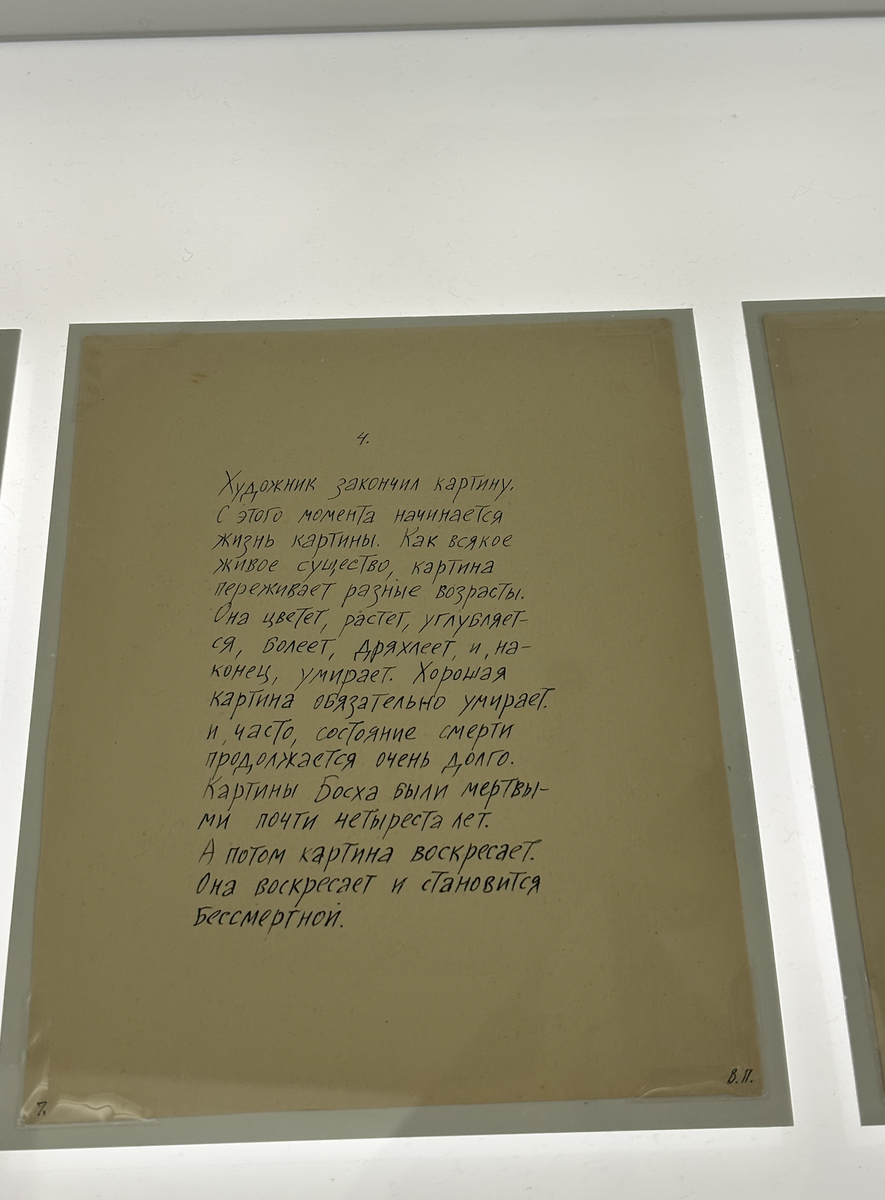 4.
Художник закончил картину.
С этого момента начинается
жизнь картины. Как всякое
живое существо, картина
переживает разные возрасты.
Она цветет, растет, углубляет-
ся, болеет, дряхлеет, и, на-
конец, умирает. Хорошая
картина обязательно умирает.
и, часто, состояние смерти
продолжается очень долго.
Картины Босха были мертвы-
ми почти четыреста лет.
А потом картина воскресает.
Она воскресает и становится
бессмертной.
В.П.
7.